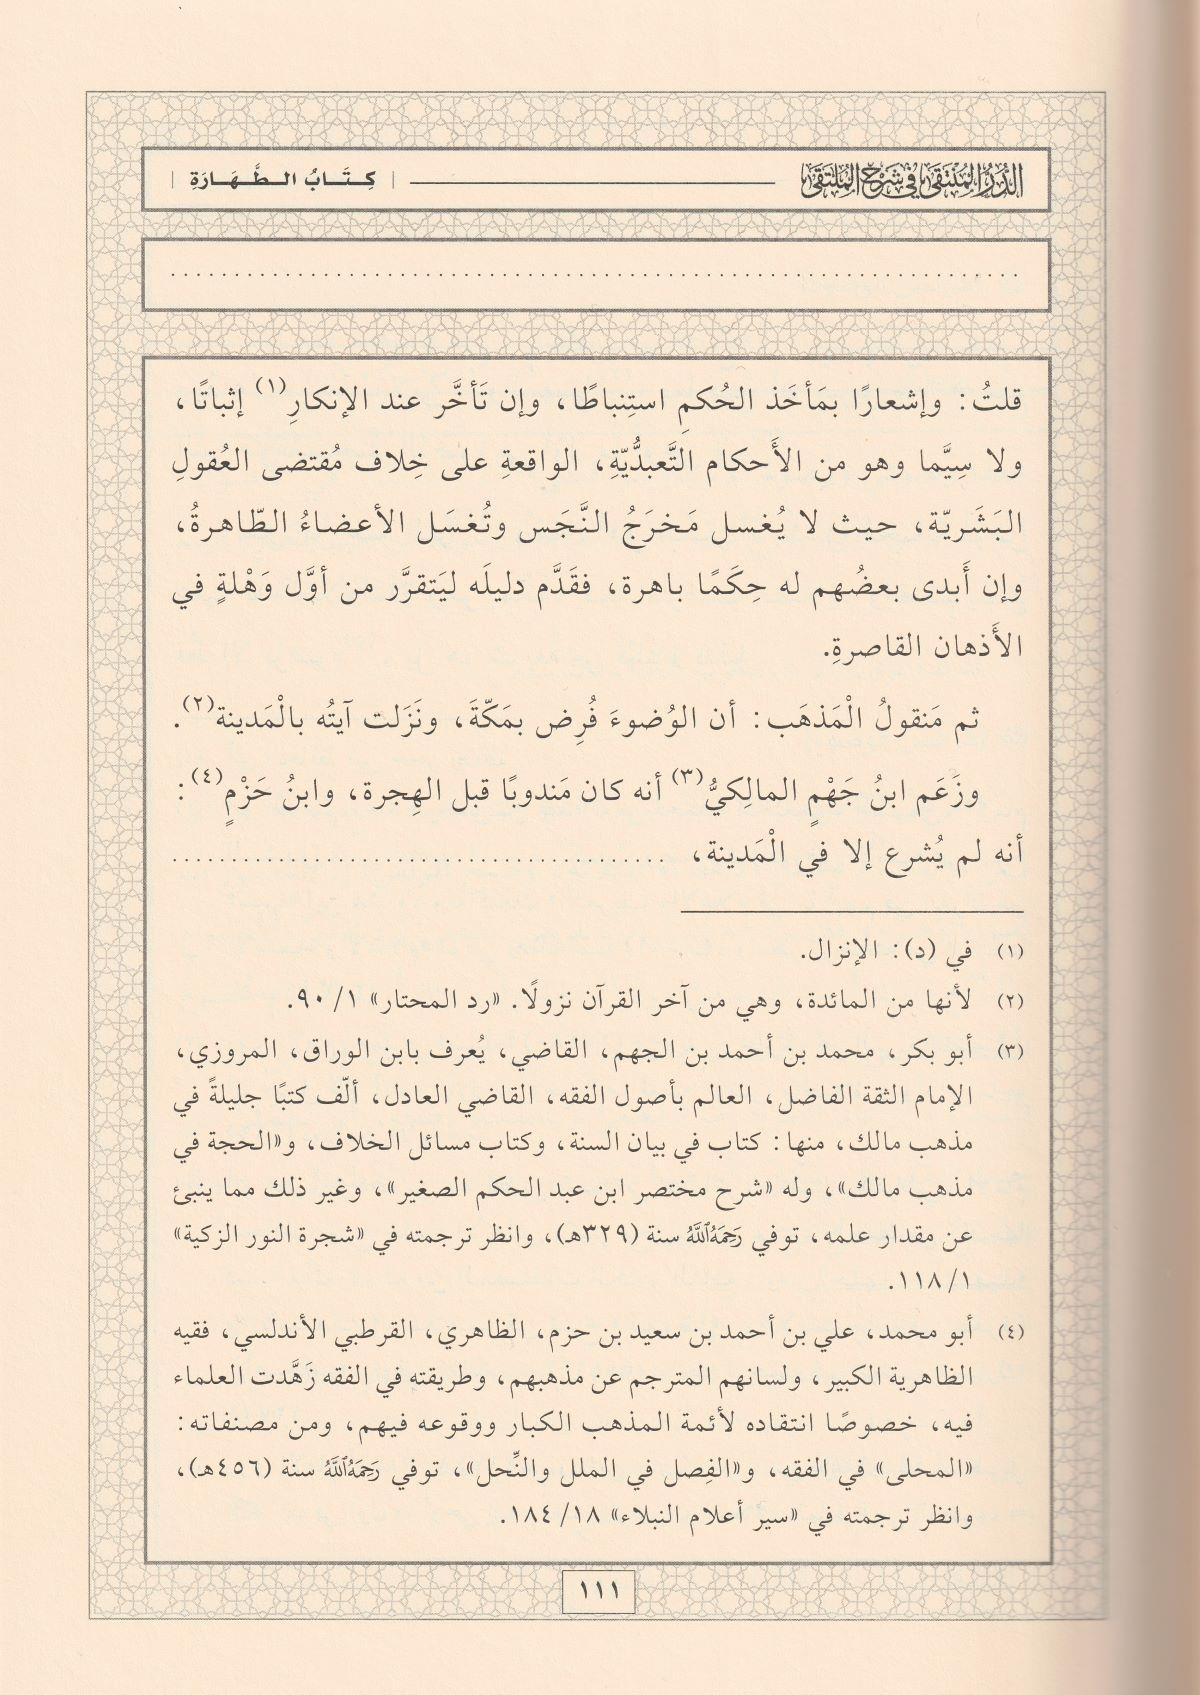 الدُّرُّ المُنْتَقَى فِي شَرْحِ المُلْتَقَى
| كِتَابُ الطَّهَارَةِ |
قلتُ: وإشعارًا بمَأخَذ الحُكمِ استِنباطًا، وإن تَأخَّر عند الإنكارِ(١) إثباتًا،
ولا سِيَّما وهو من الأَحكام التَّعبدُّيّةِ، الواقعةِ على خِلاف مُقتضى العُقولِ
البَشَريّة، حيث لا يُغسل مَخرَجُ النَّجَس وتُغسَل الأعضاءُ الطّاهرةُ،
وإن أَبدى بعضُهم له حِكَمًا باهرة، فقَدَّم دليلَه ليَتقرَّر من أوَّل وَهْلةٍ في
الأَذهان القاصرةِ.
ثم مَنقولُ الْمَذهَب: أن الوُضوءَ فُرِض بمَكّةَ، ونَزَلت آيتُه بالْمَدينة(٢).
وزَعَم ابنُ جَهْمٍ المالِكيُّ(٣) أنه كان مَندوبًا قبل الهِجرة، وابنُ حَزْمٍ(٤):
أنه لم يُشرع إلا في الْمَدينة، ........................................
(١) في (د): الإنزال.
(٢) لأنها من المائدة، وهي من آخر القرآن نزولًا. «رد المحتار» ١/ ٩٠.
(٣) أبو بكر، محمد بن أحمد بن الجهم، القاضي، يُعرف بابن الوراق، المروزي،
الإمام الثقة الفاضل، العالم بأصول الفقه، القاضي العادل، ألّف كتبًا جليلةً في
مذهب مالك، منها: كتاب في بيان السنة، وكتاب مسائل الخلاف، و«الحجة في
مذهب مالك»، وله «شرح مختصر ابن عبد الحكم الصغير»، وغير ذلك مما ينبئ
عن مقدار علمه، توفي رَحِمَهُ ٱللَّهُ سنة (٣٢٩هـ)، وانظر ترجمته في «شجرة النور الزكية»
١/ ١١٨.
(٤) أبو محمد، علي بن أحمد بن سعيد بن حزم، الظاهري، القرطبي الأندلسي، فقيه
الظاهرية الكبير، ولسانهم المترجم عن مذهبهم، وطريقته في الفقه زَهَّدت العلماء
فيه، خصوصًا انتقاده لأئمة المذهب الكبار ووقوعه فيهم، ومن مصنفاته:
«المحلى» في الفقه، و«الفِصل في الملل والنِّحل»، توفي رَحِمَهُ ٱللَّهُ سنة (٤٥٦هـ)،
وانظر ترجمته في «سير أعلام النبلاء» ١٨/ ١٨٤.
١١١